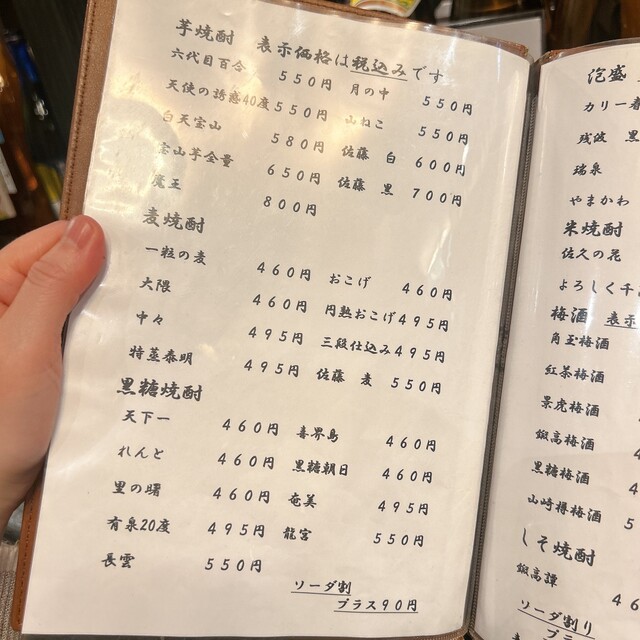 芋焼酎 表示価格は税込みです
六代目百合 550円 月の中 550円
天使の誘惑40度 550円 山ねこ 550円
白天宝山 580円 佐藤 白 600円
宝山芋全量 650円 佐藤 黒 700円
魔王 800円
麦焼酎
一粒の麦 460円 おこげ 460円
大隈 460円 円熟おこげ 495円
中々 495円 三段仕込み 495円
特蒸泰明 495円 佐藤 麦 550円
黒糖焼酎
天下一 460円 喜界島 460円
れんと 460円 黒糖朝日 460円
里の曙 460円 奄美 495円
有泉20度 495円 龍宮 550円
長雲 550円
ソーダ割
プラス90円
泡盛
カリー春
残波 黒
瑞泉
やまかわ
米焼酎
佐久の花
よろしく千
梅酒 表示
角玉梅酒
紅茶梅酒
景虎梅酒
鍛高梅酒
黒糖梅酒
山崎樽梅酒 5
しそ焼酎
鍛高譚 46
ソーダ割り
プ